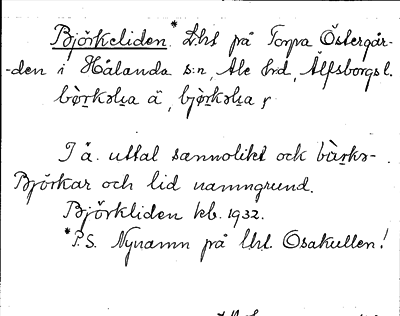 Björkeliden * Lht på Torpa Östergår-
-den i Hålanda s:n, Ale hrd, Älfsborgs l.
I ä. uttal sannolikt ock bàrkə-
Björkar och lid namngrund.
Björkliden kb. 1932.
*P.S. Nynamn på lht. Osakullen!